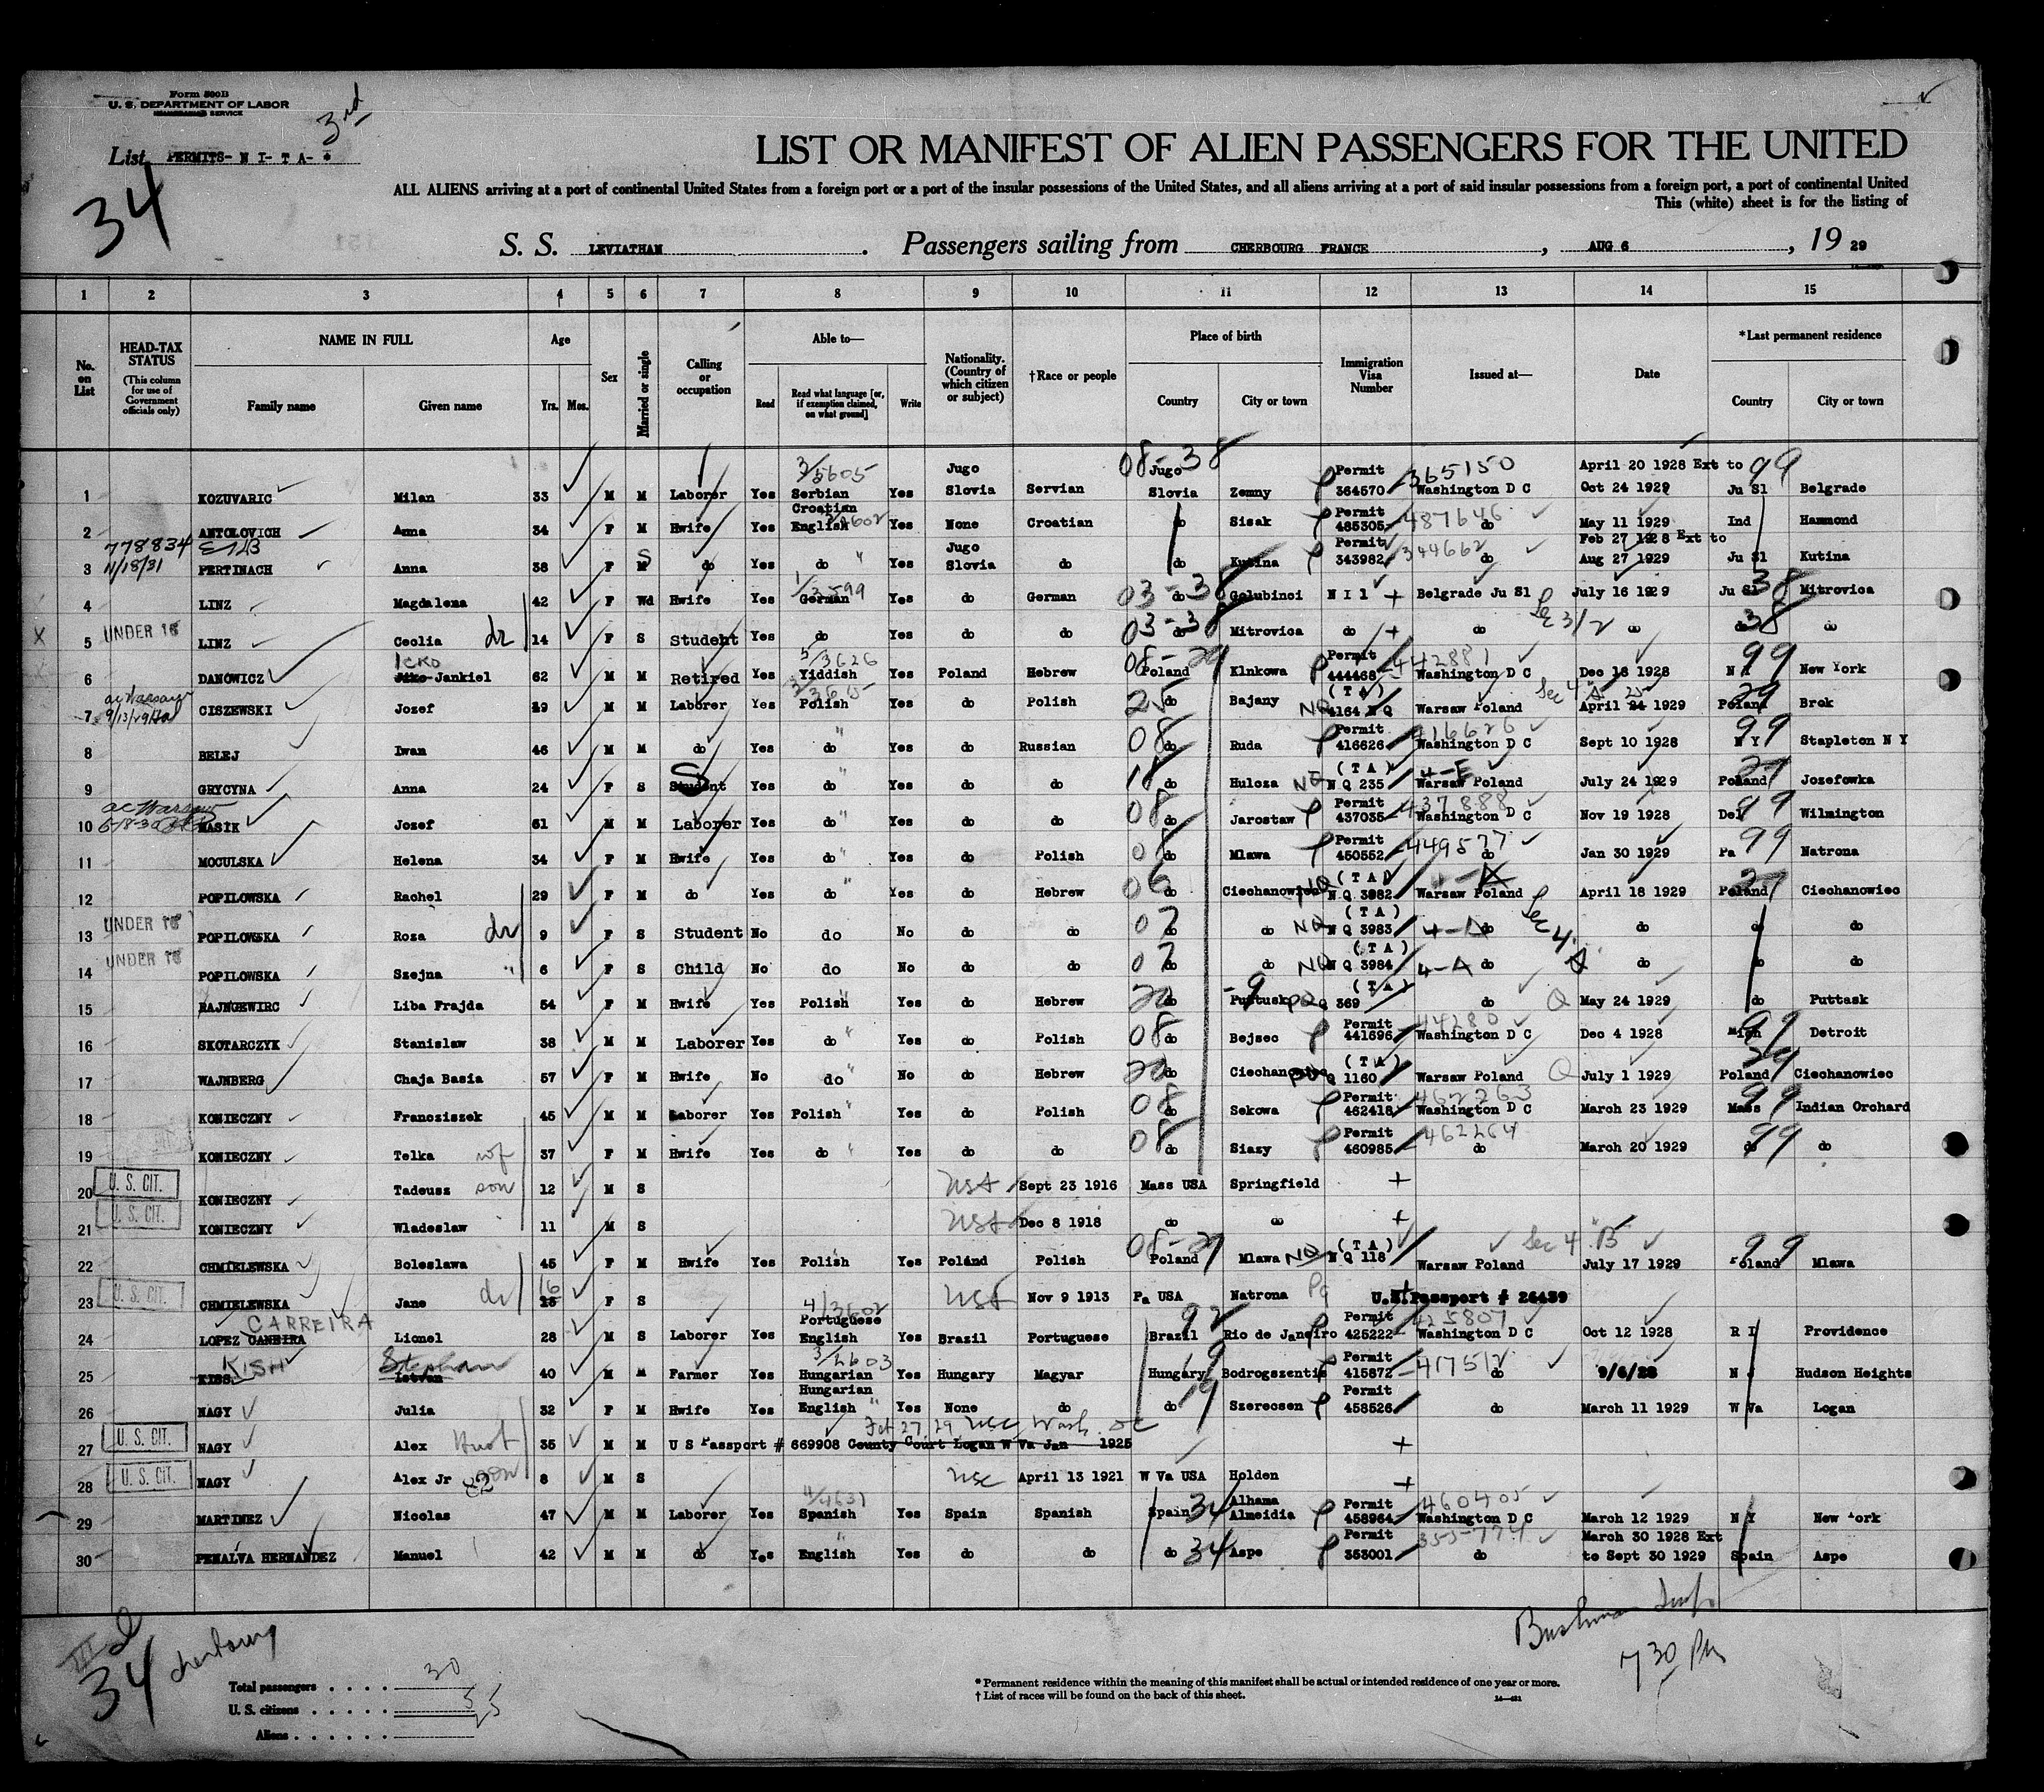 Form 500B
U. S. DEPARTMENT OF LABOR
IMMIGRATION SERVICE
3rd
List PERMITS- N I- T A- *
34
LIST OR MANIFEST OF ALIEN PASSENGERS FOR THE UNITED
ALL ALIENS arriving at a port of continental United States from a foreign port or a port of the insular possessions of the United States, and all aliens arriving at a port of said insular possessions from a foreign port, a port of continental United
This (white) sheet is for the listing of
S. S. LEVIATHAN. Passengers sailing from CHERBOURG FRANCE, AUG 6, 19 29
1 2 3 4 5 6 7 8 9 10 11 12 13 14 15
No. on List HEAD-TAX STATUS (This column for use of Government officials only) NAME IN FULL Family name Given name Age Yrs. Mos. Sex Married or single Calling or occupation Able to— Read Read what language [or, if exemption claimed, on what ground] Write Nationality. (Country of which citizen or subject) †Race or people Place of birth Country City or town Immigration Visa Number Issued at— Date *Last permanent residence Country City or town
1 KOZUVARIC Milan 33 M M Laborer Yes 3/5605 Serbian Yes Jugo Slovia Servian 08-38 Jugo Slovia Zemny Permit 364570 365150 Washington D C April 20 1928 Ext to Oct 24 1929 99 Ju Sl Belgrade
2 ANTOLOVICH Anna 34 F M Hwife Yes Croatian English Yes None Croatian do Sisak Permit 485305 487646 do May 11 1929 Ind Hammond
778834 11/18/31
3 PERTINACH Anna 38 F M S do Yes do " Yes Jugo Slovia do do Kutina Permit 343982 344662 do Feb 27 1928 Ext to Aug 27 1929 Ju Sl Kutina
4 LINZ Magdalena 42 F Wd Hwife Yes German Yes do German 03-38 do Golubinci N I 1 + Belgrade Ju Sl July 16 1929 Ju Sl 38 Mitrovica
5 UNDER 16 LINZ Ceclia dr 14 F S Student Yes do Yes do do 03-38 do Mitrovica do + do Sec 3/2 do do 38 do
6 DANOWICZ Icko Jankiel 62 M M Retired Yes 5/3626 Yiddish Yes Poland Hebrew 08-29 Poland Klnkowa Permit 444468 442881 Washington D C Dec 18 1928 N Y 99 New York
7 CISZEWSKI Jozef 19 M M Laborer Yes Polish Yes do Polish 25 do Bajany NQ (TA) 4164 N Q Warsaw Poland Sec 4 April 24 1929 Poland 29 Brok
8 BELEJ Iwan 46 M M do Yes do " Yes do Russian 08 do Ruda Permit 416626 416626 Washington D C Sept 10 1928 N Y 99 Stapleton N Y
9 GRYCYNA Anna 24 F S Student Yes do " Yes do do 18 do Hulcza NQ (TA) N Q 235 4-E Warsaw Poland July 24 1929 Poland Jozefowka
10 MASIK Jozef 51 M M Laborer Yes do " Yes do do 08 do Jaroslaw Permit 437035 437888 Washington D C Nov 19 1928 Del 99 Wilmington
11 MOCULSKA Helena 34 F M Hwife Yes do " Yes do Polish 08 do Mlawa Permit 450552 449577 do Jan 30 1929 Pa 99 Natrona
12 POPILOWSKA Rachel 29 F M do Yes do " Yes do Hebrew 06 do Ciechanowiec NQ (TA) N Q 3982 4-A Warsaw Poland April 18 1929 Poland Ciechanowiec
13 UNDER 16 POPILOWSKA Roza dr 9 F S Student No do No do do 07 do do NQ (TA) N Q 3983 4-A do Sec 4 A do do do
14 UNDER 16 POPILOWSKA Szejna " 6 F S Child No do No do do 07 do do NQ (TA) N Q 3984 4-A do do do do
15 RAJNGEWIRC Liba Frajda 54 F M Hwife Yes Polish Yes do Hebrew do Pultusk (TA) Q 369 do Q May 24 1929 do Puttask
16 SKOTARCZYK Stanislaw 38 M M Laborer Yes do " Yes do Polish 08 do Bejsec Permit 441696 44280 Washington D C Dec 4 1928 Mich 99 Detroit
17 WAJNBERG Chaja Basia 57 F M Hwife No do " No do Hebrew do Ciechan (TA) Q 1160 Warsaw Poland Q July 1 1929 Poland 29 Ciechanowiec
18 KONIECZNY Franciszek 45 M M Laborer Yes Polish " Yes do Polish 08 do Sekowa Permit 462418 462263 Washington D C March 23 1929 Mass 99 Indian Orchard
19 KONIECZNY Telka wf 37 F M Hwife Yes do " Yes do do 08 do Siazy Permit 460985 462264 do March 20 1929 do 99 do
20 U. S. CIT. KONIECZNY Tadeusz son 12 M S USA Sept 23 1916 Mass USA Springfield +
21 U. S. CIT. KONIECZNY Wladeslaw 11 M S USA Dec 8 1918 do do +
22 CHMIELEWSKA Boleslawa 45 F M Hwife Yes Polish Yes Poland Polish 08-29 Poland Mlawa NQ (TA) N Q 118 Warsaw Poland Sec 4 B July 17 1929 Poland 99 Mlawa
23 U. S. CIT. CHMIELEWSKA Jane dr 16 15 F S USA Nov 9 1913 Pa USA Natrona U.S. Passport # 26439
24 LOPEZ CANEIRA CARREIRA Lionel 28 M S Laborer Yes 4/3602 Portuguese English Yes Brazil Portuguese Brazil 92 Rio de Janeiro Permit 425222 425807 Washington D C Oct 12 1928 R I Providence
25 KISS KISH Stephan Istvan 40 M M Farmer Yes 3/2603 Hungarian Yes Hungary Magyar Hungary 19 Bodrogszentis Permit 415872 417512 do 9/6/28 N J Hudson Heights
26 NAGY Julia 32 F M Hwife Yes Hungarian English " Yes None do do 19 Szerecsen Permit 458526 do March 11 1929 W Va Logan
27 U. S. CIT. NAGY Alex Husb 35 M M U S Passport # 669908 County Court Logan W Va Jan 1925 Feb 27, 29, USC, Wash. DC +
28 U. S. CIT. NAGY Alex Jr son 8 M S USC April 13 1921 W Va USA Holden +
29 MARTINEZ Nicolas 47 M M Laborer Yes 4/4631 Spanish Yes Spain Spanish Spain 34 Alhama Almeidia Permit 458964 460405 Washington D C March 12 1929 N Y New York
30 PENALVA HERNANDEZ Manuel 42 M M do Yes English Yes do do do 34 Aspe Permit 353001 355774 do March 30 1928 Ext to Sept 30 1929 Spain Aspe
34 Cherbourg
Total passengers . . . . 30
U. S. citizens . . . . . 5
Aliens . . . . . . 25
* Permanent residence within the meaning of this manifest shall be actual or intended residence of one year or more.
† List of races will be found on the back of this sheet.
7 30 PM